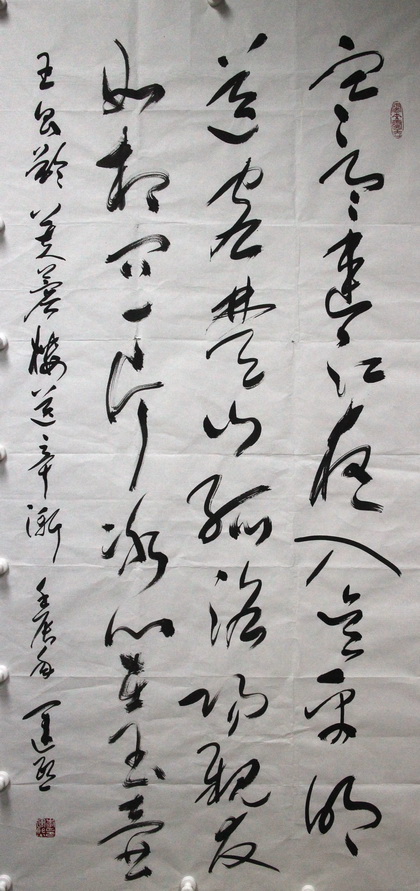 寒雨連江夜入吴平明
送客楚山孤洛陽親友
如相問一片冰心在玉壺
王昌齡芙蓉樓送辛漸 壬辰